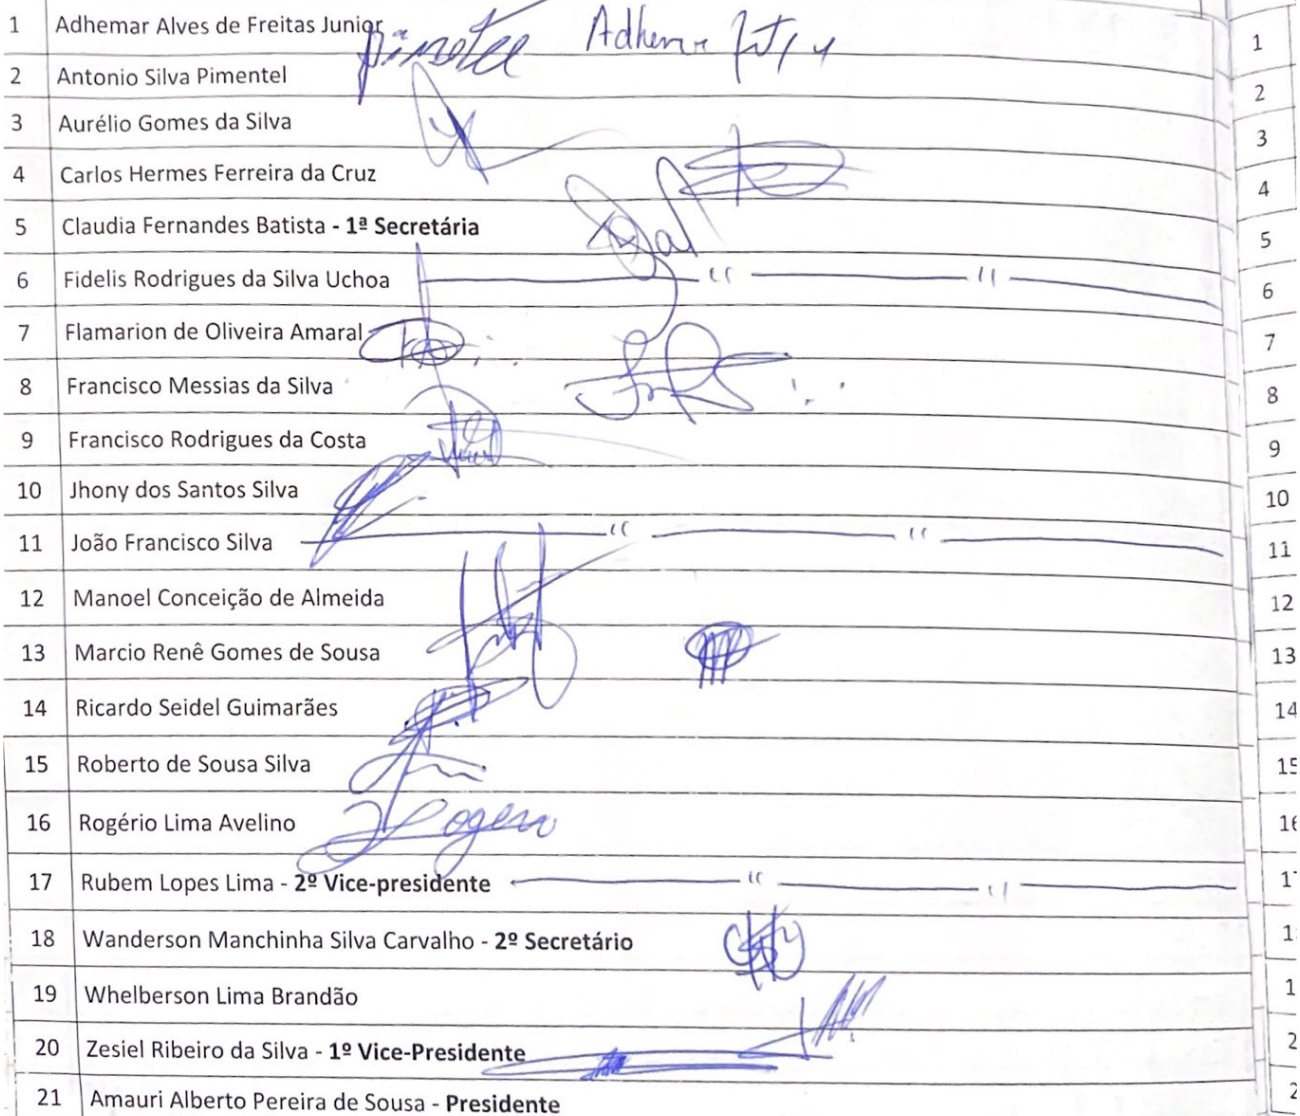 1 Adhemar Alves de Freitas Junior Adhemar 1
2 Antonio Silva Pimentel 2
3 Aurélio Gomes da Silva 3
4 Carlos Hermes Ferreira da Cruz 4
5 Claudia Fernandes Batista - 1ª Secretária 5
6 Fidelis Rodrigues da Silva Uchoa " " 6
7 Flamarion de Oliveira Amaral 7
8 Francisco Messias da Silva 8
9 Francisco Rodrigues da Costa 9
10 Jhony dos Santos Silva 10
11 João Francisco Silva " " 11
12 Manoel Conceição de Almeida 12
13 Marcio Renê Gomes de Sousa 13
14 Ricardo Seidel Guimarães 14
15 Roberto de Sousa Silva 15
16 Rogério Lima Avelino 16
17 Rubem Lopes Lima - 2º Vice-presidente " " 1
18 Wanderson Manchinha Silva Carvalho - 2º Secretário 1
19 Whelberson Lima Brandão 1
20 Zesiel Ribeiro da Silva - 1º Vice-Presidente 2
21 Amauri Alberto Pereira de Sousa - Presidente 2